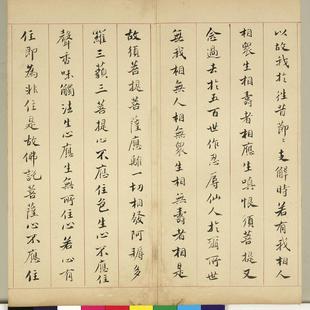 以故我於往昔節〻支解時若有我相人
相衆生相壽者相應生嗔恨須菩提又
念過去於五百世作忍辱仙人於爾所世
無我相無人相無衆生相無壽者相是
故須菩提菩薩應離一切相發阿耨多
羅三藐三菩提心不應住色生心不應住
聲香味觸法生心應生無所住心若心有
住即為非住是故佛說菩薩心不應住